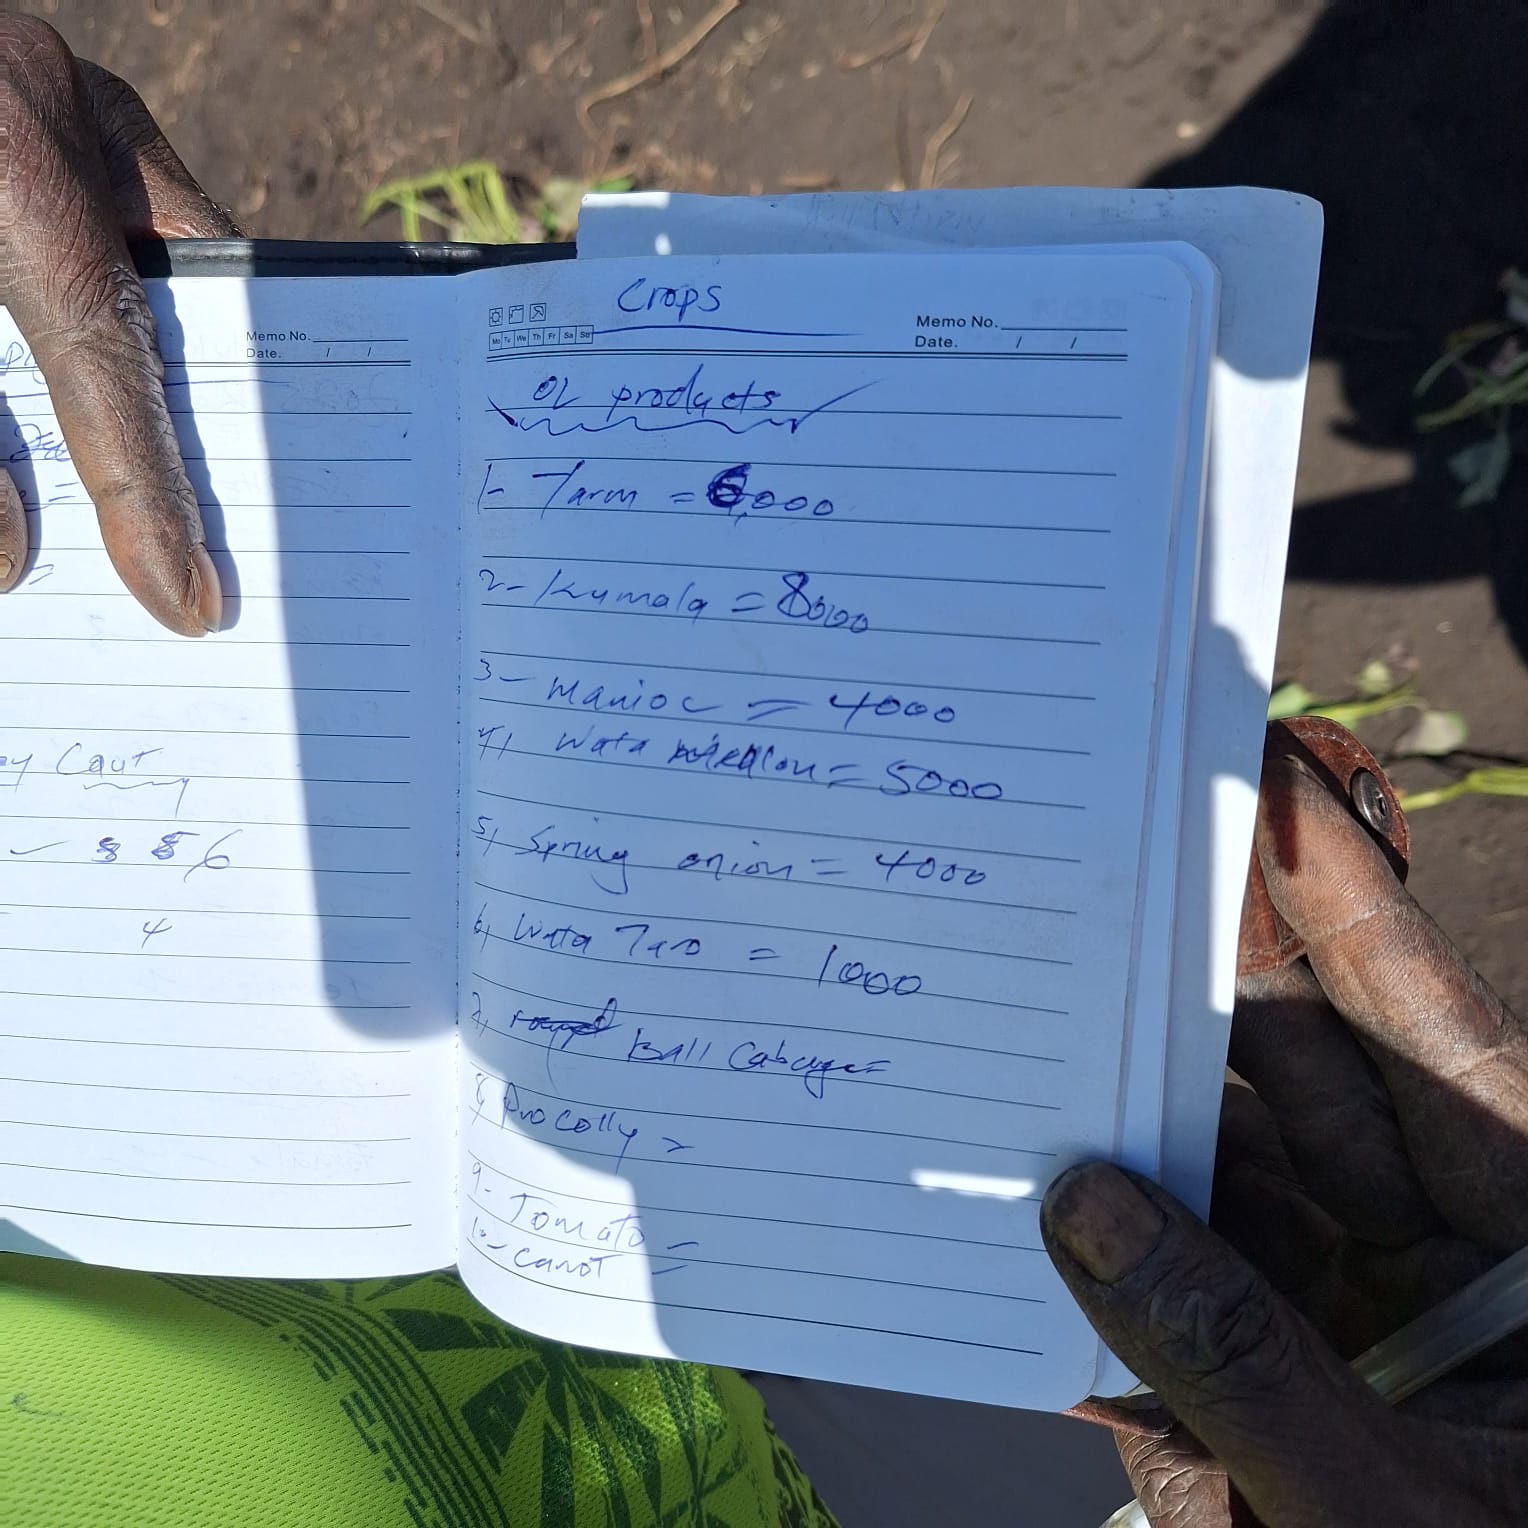 Memo No.
Date. / /
=
=
ey Caut
6
4
Crops
Mo Tu We Th Fr Sa Su
Memo No.
Date. / /
OL products
1- Yarm = 6,000
2- Kumala = 8000
3- Manioc = 4000
4, Wata melon = 5000
5, Spring onion = 4000
6, Wata Taro = 1000
7, Ball Cabage =
8, Procolly =
9- Tomato =
10- Carrot =